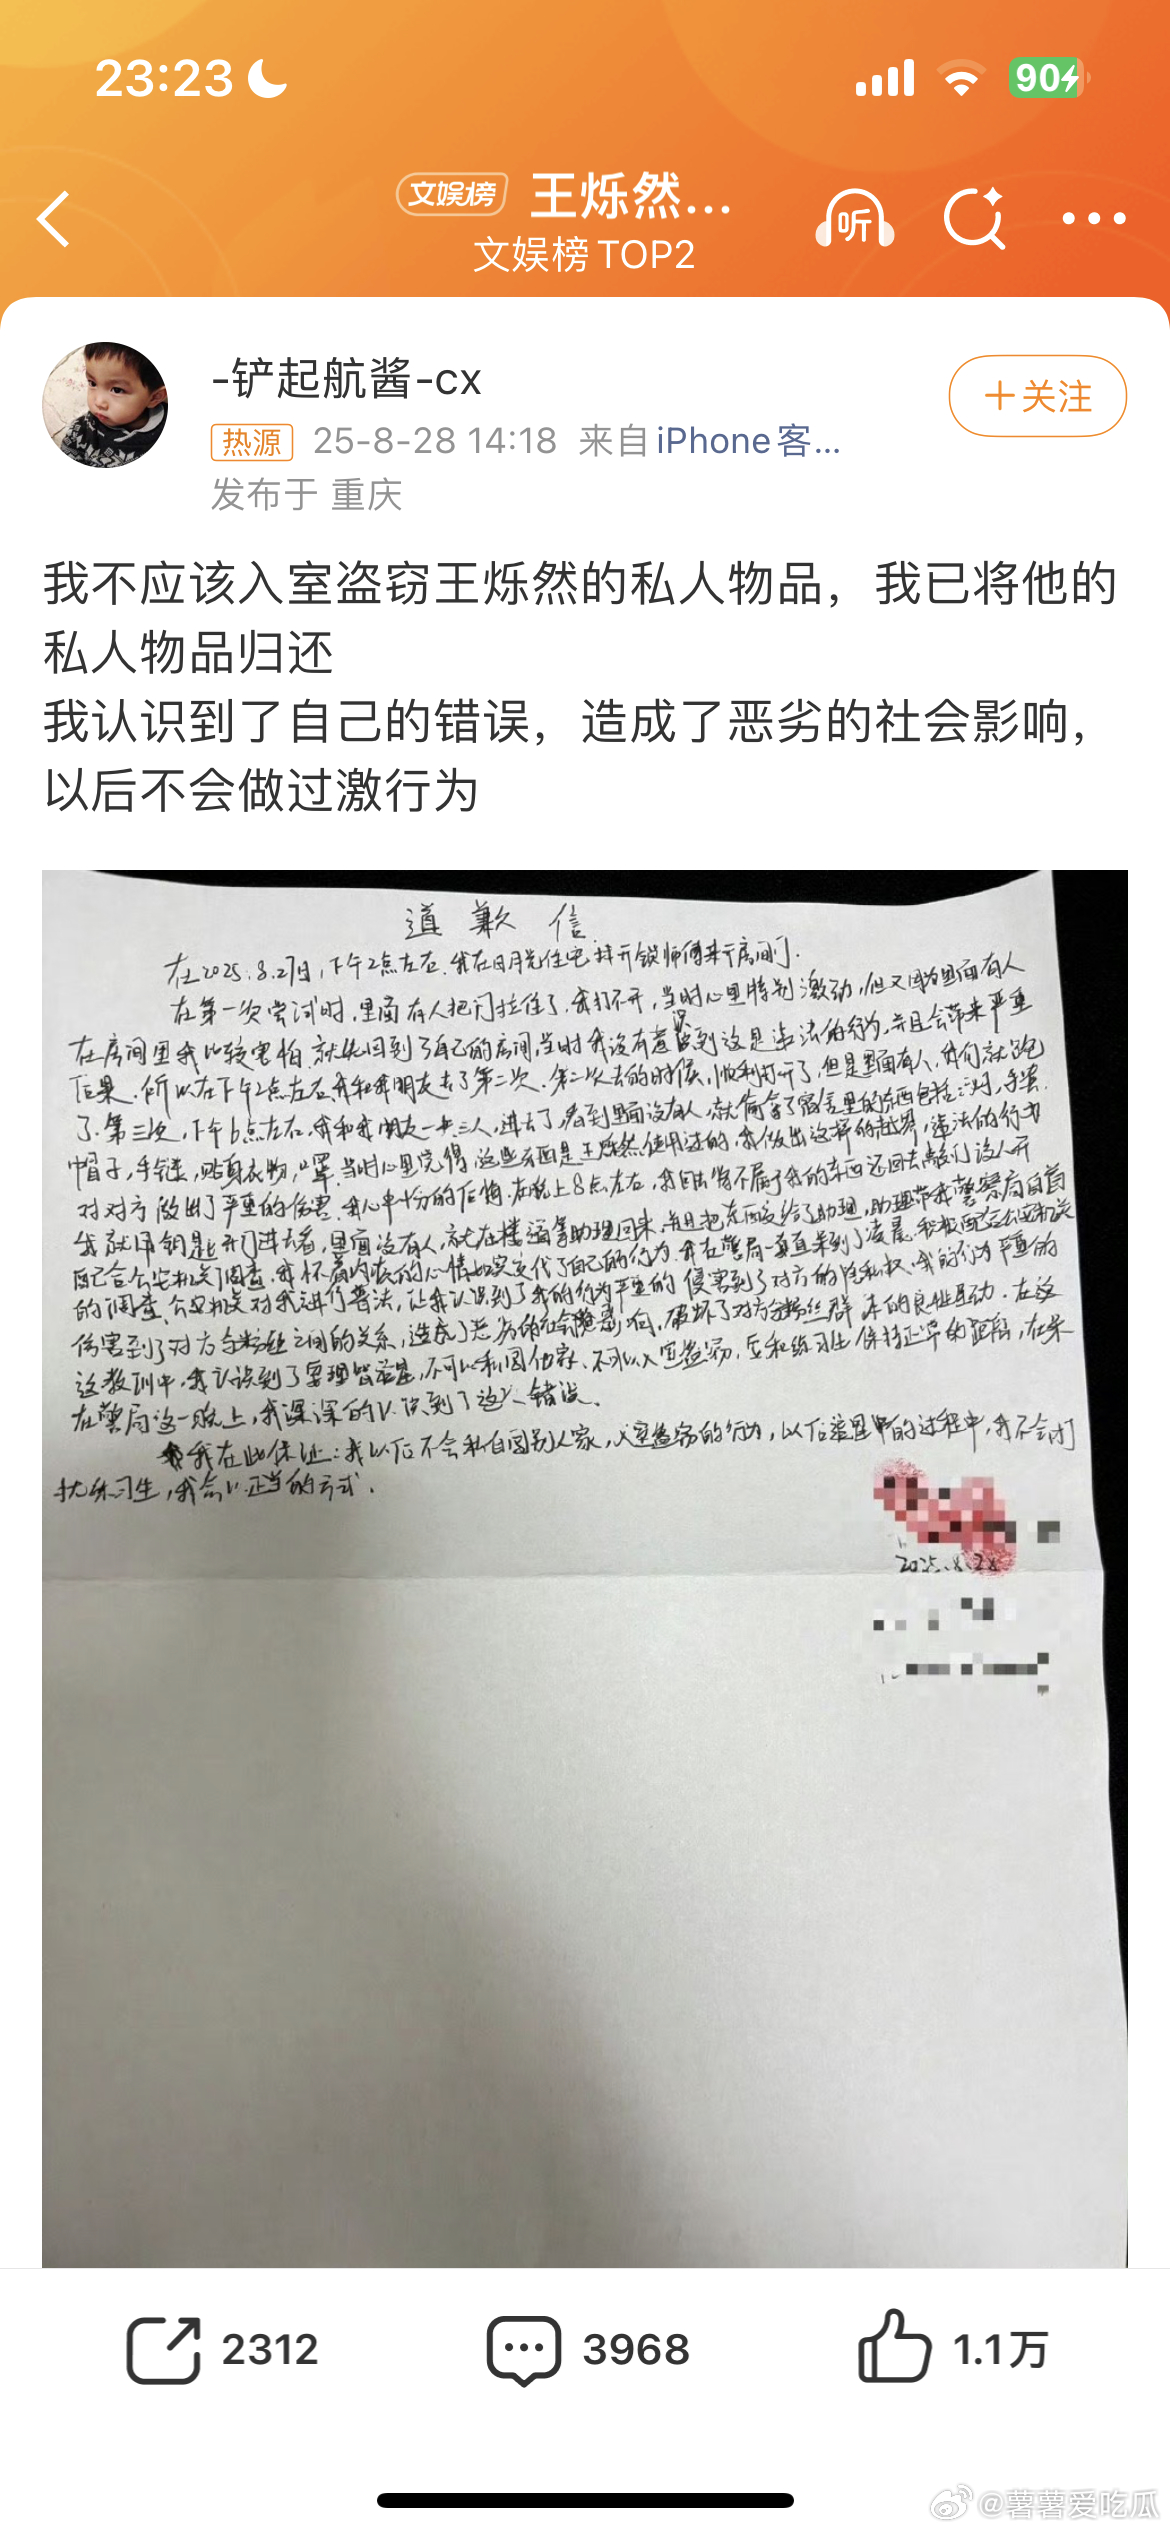 23:23
90
文娱榜 王烁然...
听
文娱榜 TOP2
-铲起航酱-cx
+关注
热源 25-8-28 14:18 来自 iPhone客...
发布于 重庆
我不应该入室盗窃王烁然的私人物品，我已将他的
私人物品归还
我认识到了自己的错误，造成了恶劣的社会影响，
以后不会做过激行为
道歉信
在2025.8.27日，下午2点左右，我在日月光住宅找开锁师傅开房间门.
在第一次尝试时，里面有人把门拉住了，我打不开，当时心里特别激动，但又因为里面有人
在房间里我比较害怕，就先回到了自己的房间，当时我没有意识到这是违法的行为，并且会带来严重
后果，所以在下午2点左右，我和我朋友去了第二次，第二次去的时候，顺利打开了，但是里面有人，我们就跑
了.第三次，下午6点左右，我和我朋友一共三人，进去了，看到里面没有人，就偷拿了宿舍里的东西包括：
帽子，手链，贴身衣物，口罩，当时心里觉得，这些东西是王烁然使用过的，我做出这样的越界，违法的行为
对对方做出了严重的伤害，我心中十分的后悔，在晚上8点左右，我回去将不属于我的东西还回去敲门没人开
我就用钥匙开门进去看，里面没有人，就在楼道等助理回来，并且把东西交给了助理，助理带我警察局自首
的调查，公安机关对我进行普法，让我认识到了我的行为严重的侵害到了对方的隐私权，我的行为严重的
伤害到了对方与粉丝之间的关系，造成了恶劣的社会影响，破坏了对方与粉丝群体的良性互动，在这
这教训中，我认识到了要理智追星，不可以私闯他宅，不可以入室盗窃，应和练习生保持正常的距离，在来
在警局这一晚上，我深深的认识到了这个错误.
我在此保证：我以后不会私自闯别人家，入室盗窃的行为，以后追星中的过程中，我不会打
扰练习生，我会以正当的方式.
2025.8.28
2312
3968
1.1万
@薯薯爱吃瓜